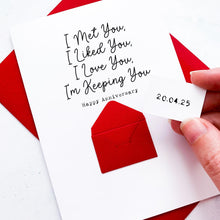 I Met You,
I Liked You,
I Love You,
I'm Keeping You
Happy Anniversary
20.04.25